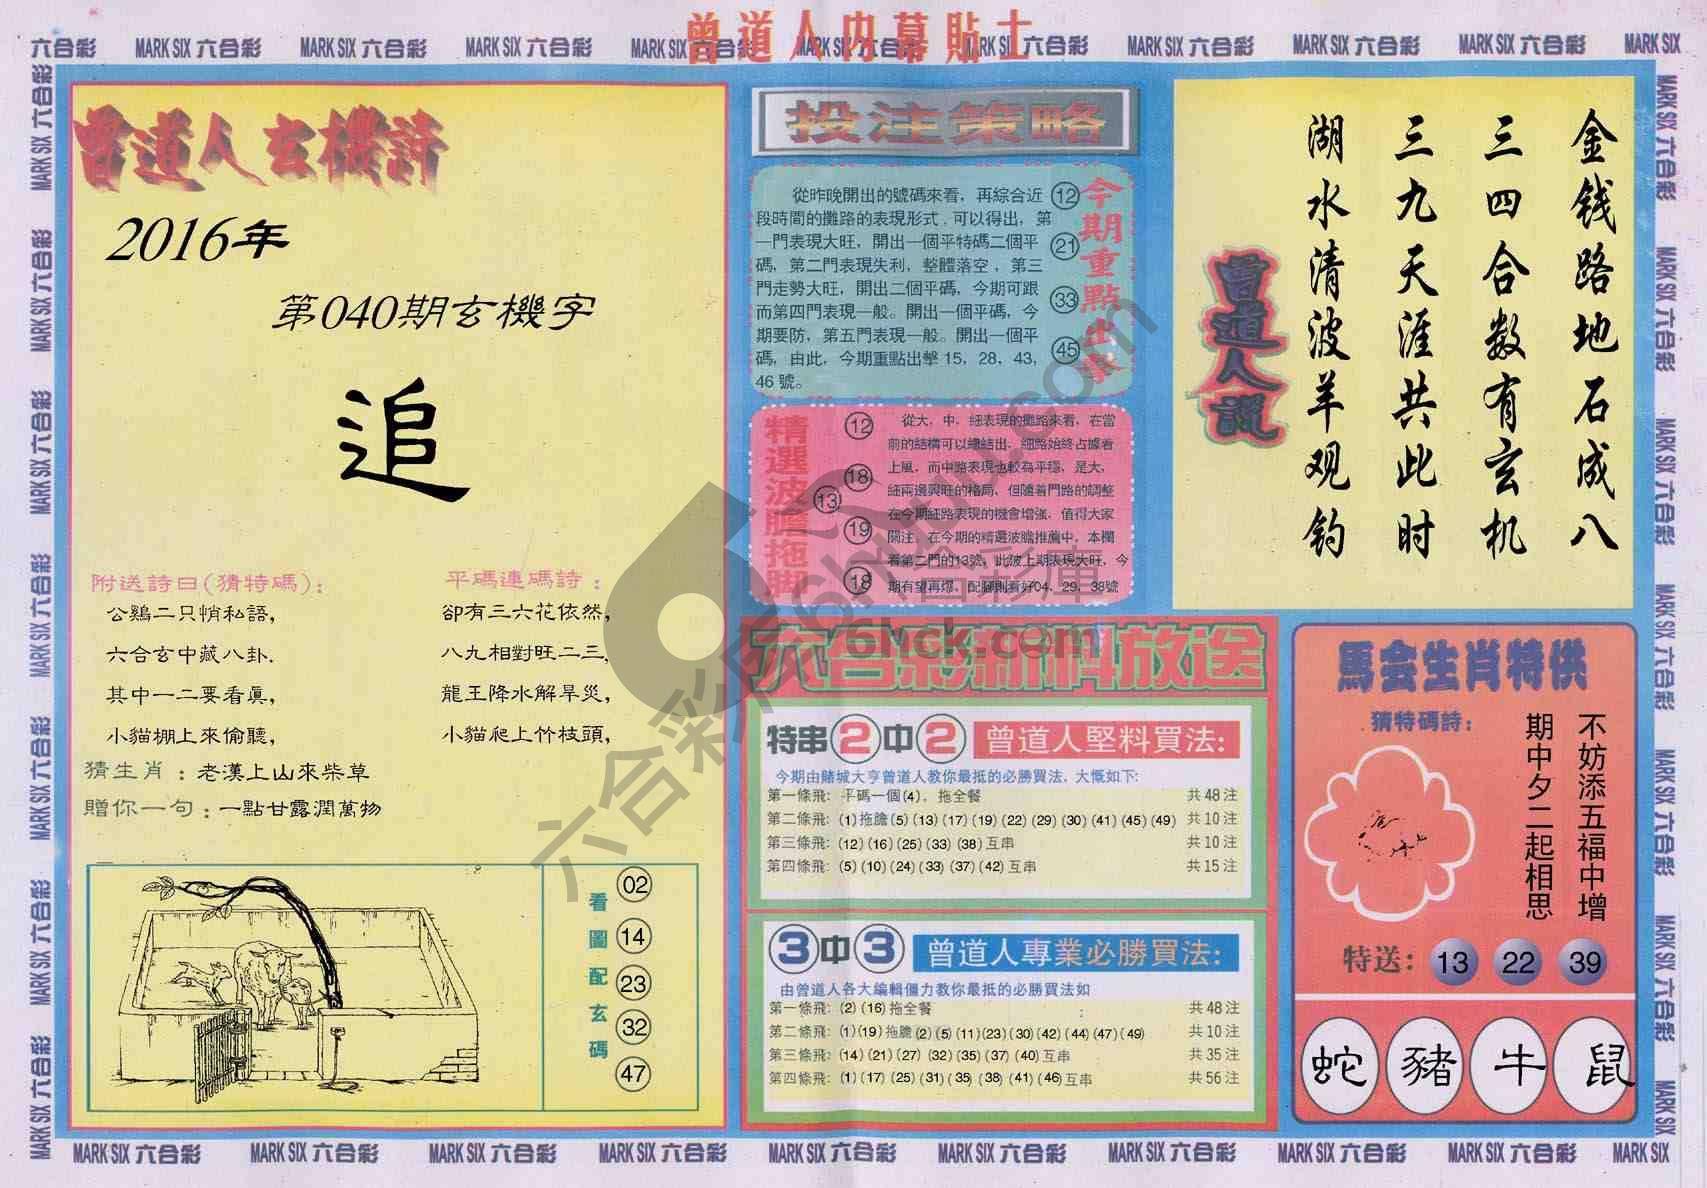 曾道人内幕貼士
六合彩 MARK SIX 六合彩 MARK SIX 六合彩 MARK SIX 六合彩 MARK SIX 六合彩 MARK SIX 六合彩 MARK SIX 六合彩 MARK SIX 六合彩 MARK SIX 六合彩 MARK SIX 六合彩 MARK SIX
曾道人玄機詩
2016年
第040期玄機字
追
附送詩曰(猜特碼):
公鷄二只悄私語,
六合玄中藏八卦.
其中一二要看眞,
小貓棚上來偷聽,
平碼連碼詩:
卻有三六花依然,
八九相對旺二三,
龍王降水解旱災,
小貓爬上竹枝頭,
猜生肖:老漢上山來柴草
贈你一句:一點甘露潤萬物
看圖配玄碼
02
14
23
32
47
投注策略
從昨晚開出的號碼來看，再綜合近
段時間的攤路的表現形式.可以得出，第
一門表現大旺，開出一個平特碼二個平
碼，第二門表現失利，整體落空，第三
門走勢大旺，開出二個平碼，今期可跟
而第四門表現一般。開出一個平碼，今
期要防，第五門表現一般。開出一個平
碼，由此，今期重點出擊 15，28，43，
46 號。
12
21
33
45
今期重點出
精選波膽拖脚
12
18
13
19
18
從大，中，細表現的攤路來看，在當
前的結構可以總結出，細路始終占據看
上風，而中路表現也較為平穩，是大，
細兩邊興旺的格局，但隨着門路的調整
在今期細路表現的機會增漲，值得大家
關注，在今期的精選波膽推薦中，本欄
看第二門的13號，此波上期表現大旺，今
期有望再爆，配腳則看好04、29、38號
六合彩新料放送
特串2中2 曾道人堅料買法:
今期由賭城大亨曾道人教你最抵的必勝買法，大慨如下:
第一條飛: 平碼一個(4)，拖全餐 共48注
第二條飛: (1)拖膽(5)(13)(17)(19)(22)(29)(30)(41)(45)(49) 共10注
第三條飛: (12)(16)(25)(33)(38)互串 共10注
第四條飛: (5)(10)(24)(33)(37)(42)互串 共15注
3中3 曾道人專業必勝買法:
由曾道人各大編輯僵力教你最抵的必勝買法如
第一條飛: (2)(16)拖全餐 共48注
第二條飛: (1)(19)拖膽(2)(5)(11)(23)(30)(42)(44)(47)(49) 共10注
第三條飛: (14)(21)(27)(32)(35)(37)(40)互串 共35注
第四條飛: (1)(17)(25)(31)(35)(38)(41)(46)互串 共56注
金钱路地石成八
三四合数有玄机
三九天涯共此时
湖水清波羊观钓
曾道人説
馬会生肖特供
猜特碼詩:
不妨添五福中增
期中夕二起相思
特送: 13 22 39
蛇 豬 牛 鼠
MARK SIX 六合彩 MARK SIX 六合彩 MARK SIX 六合彩 MARK SIX 六合彩 MARK SIX 六合彩 MARK SIX 六合彩 MARK SIX 六合彩 MARK SIX 六合彩 MARK SIX 六合彩 MARK SIX
6hck.com